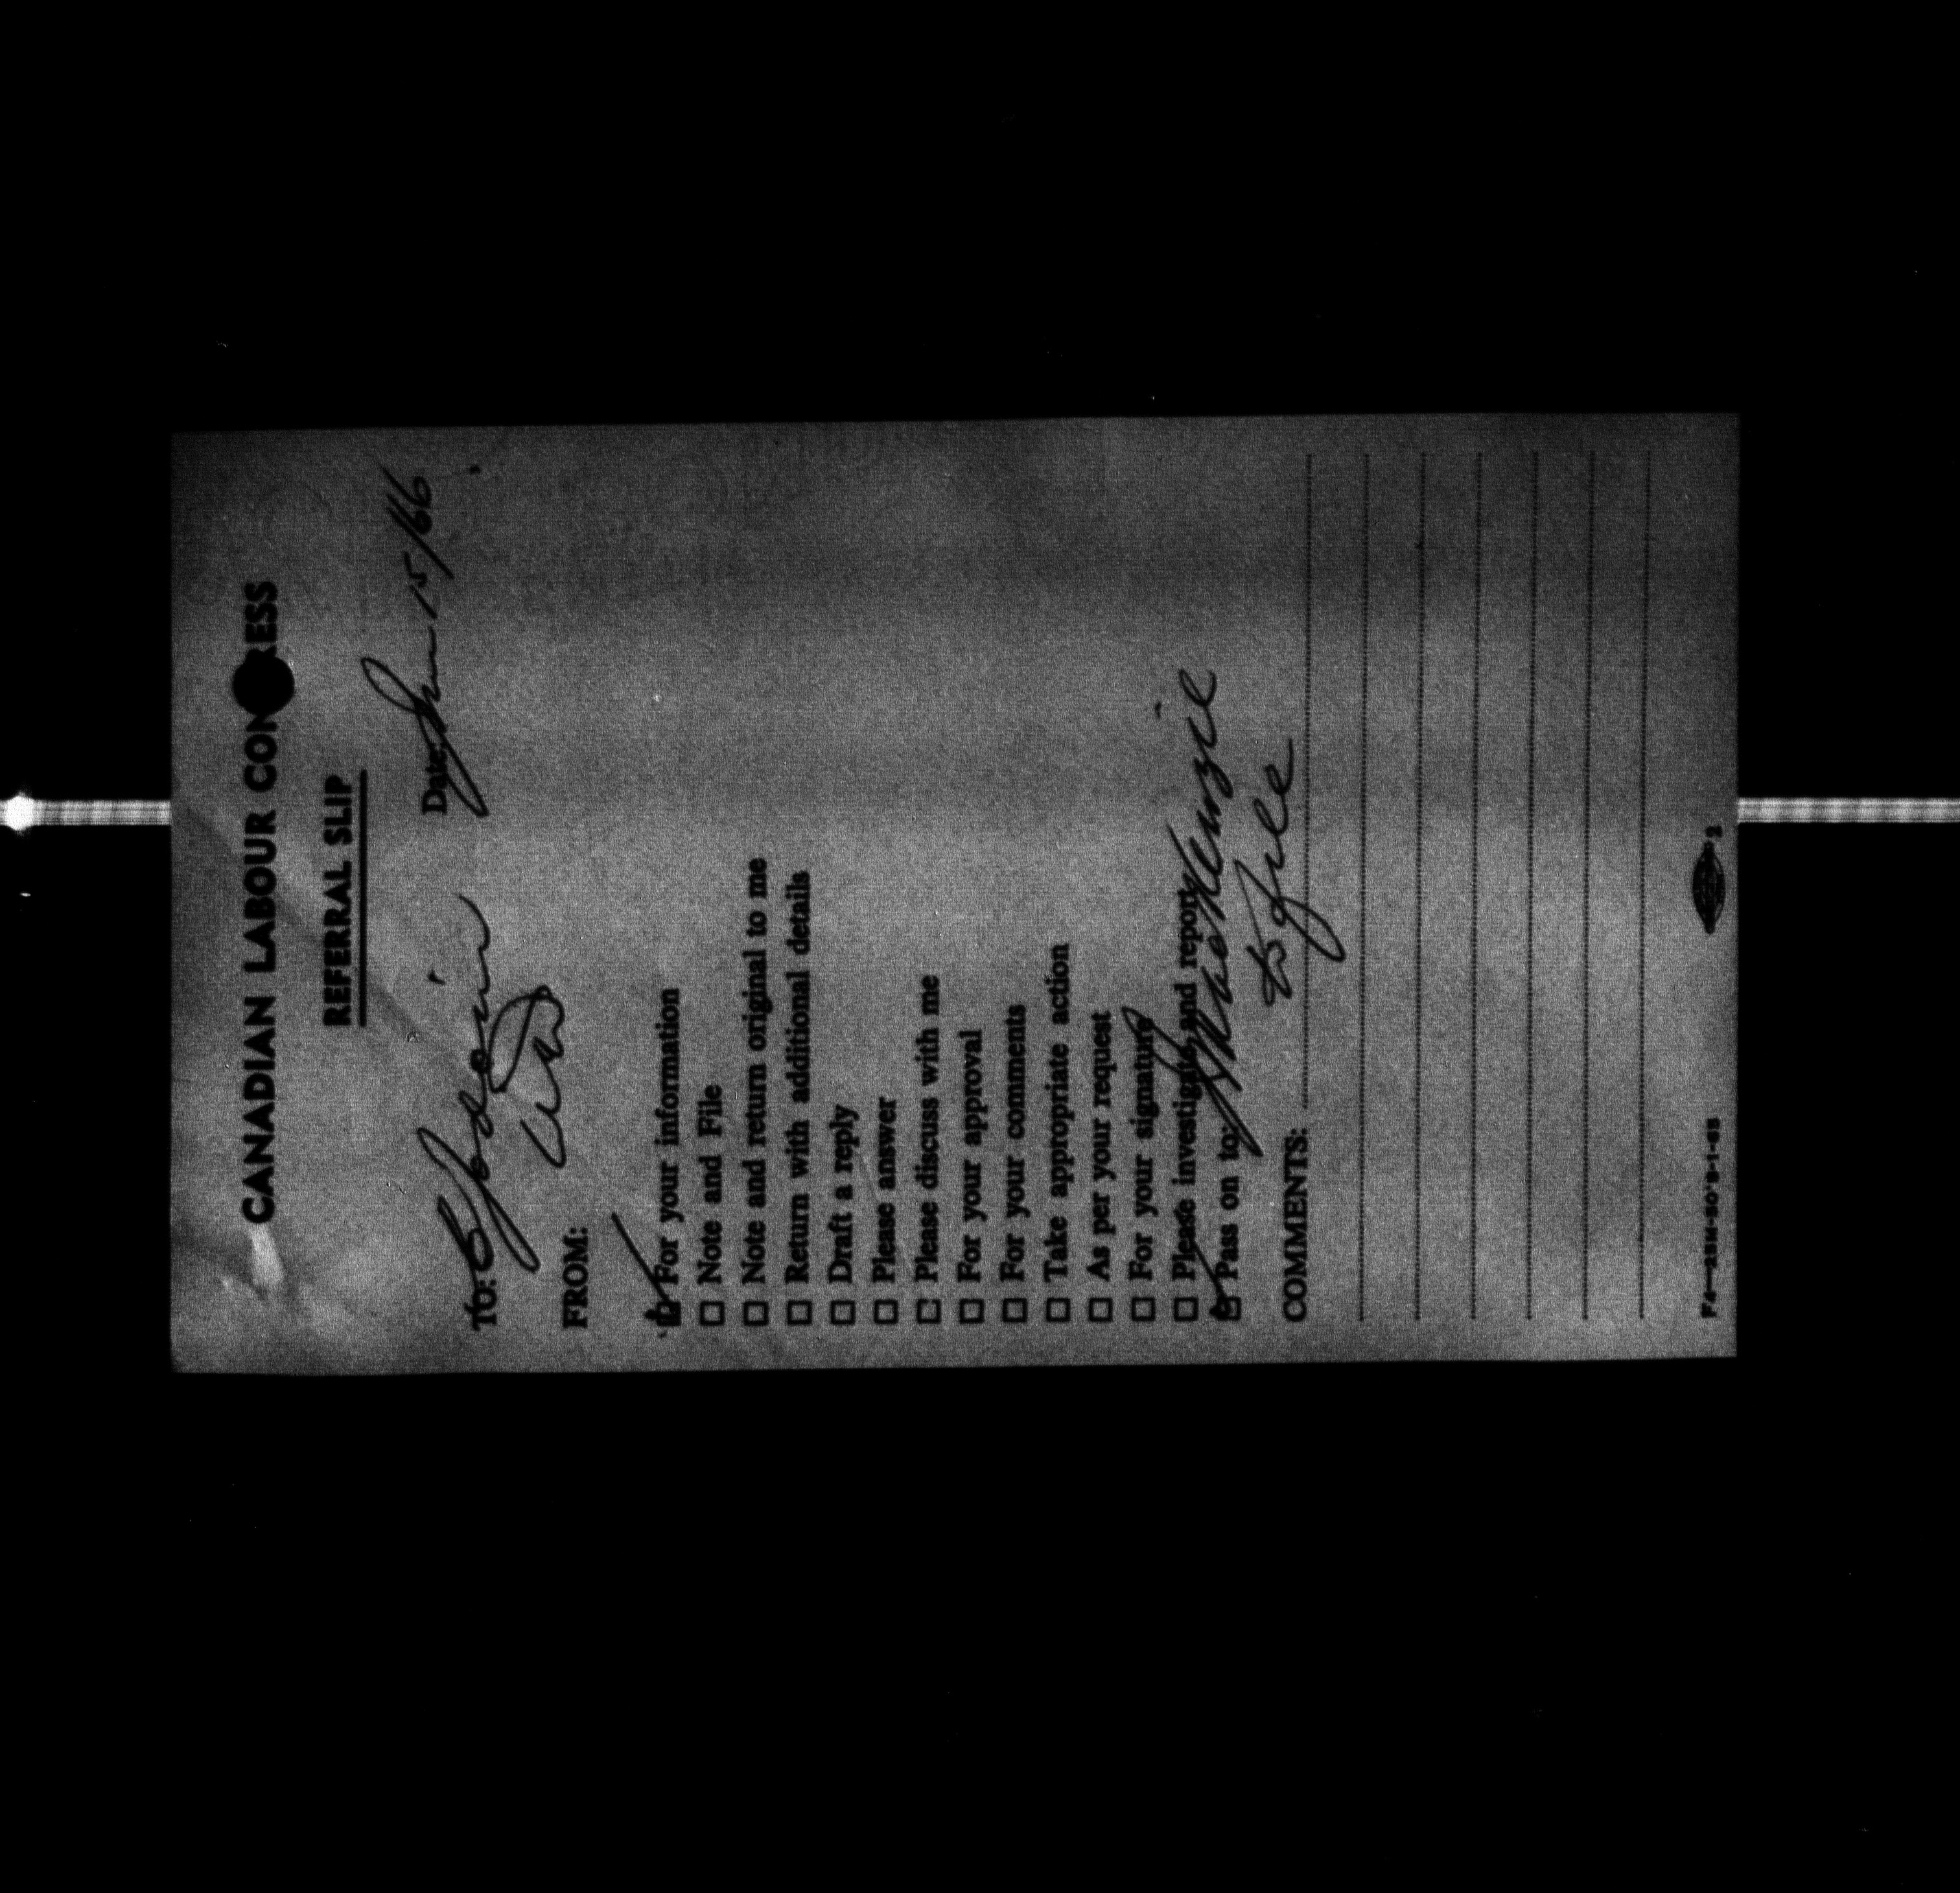 CANADIAN LABOUR CONGRESS
REFERRAL SLIP
Date: 15/66
TO:
FROM:
For your information
Note and File
Note and return original to me
Return with additional details
Draft a reply
Please answer
Please discuss with me
For your approval
For your comments
Take appropriate action
As per your request
For your signature
Please investigate and report
Pass on to: MacKenzie
to file
COMMENTS: